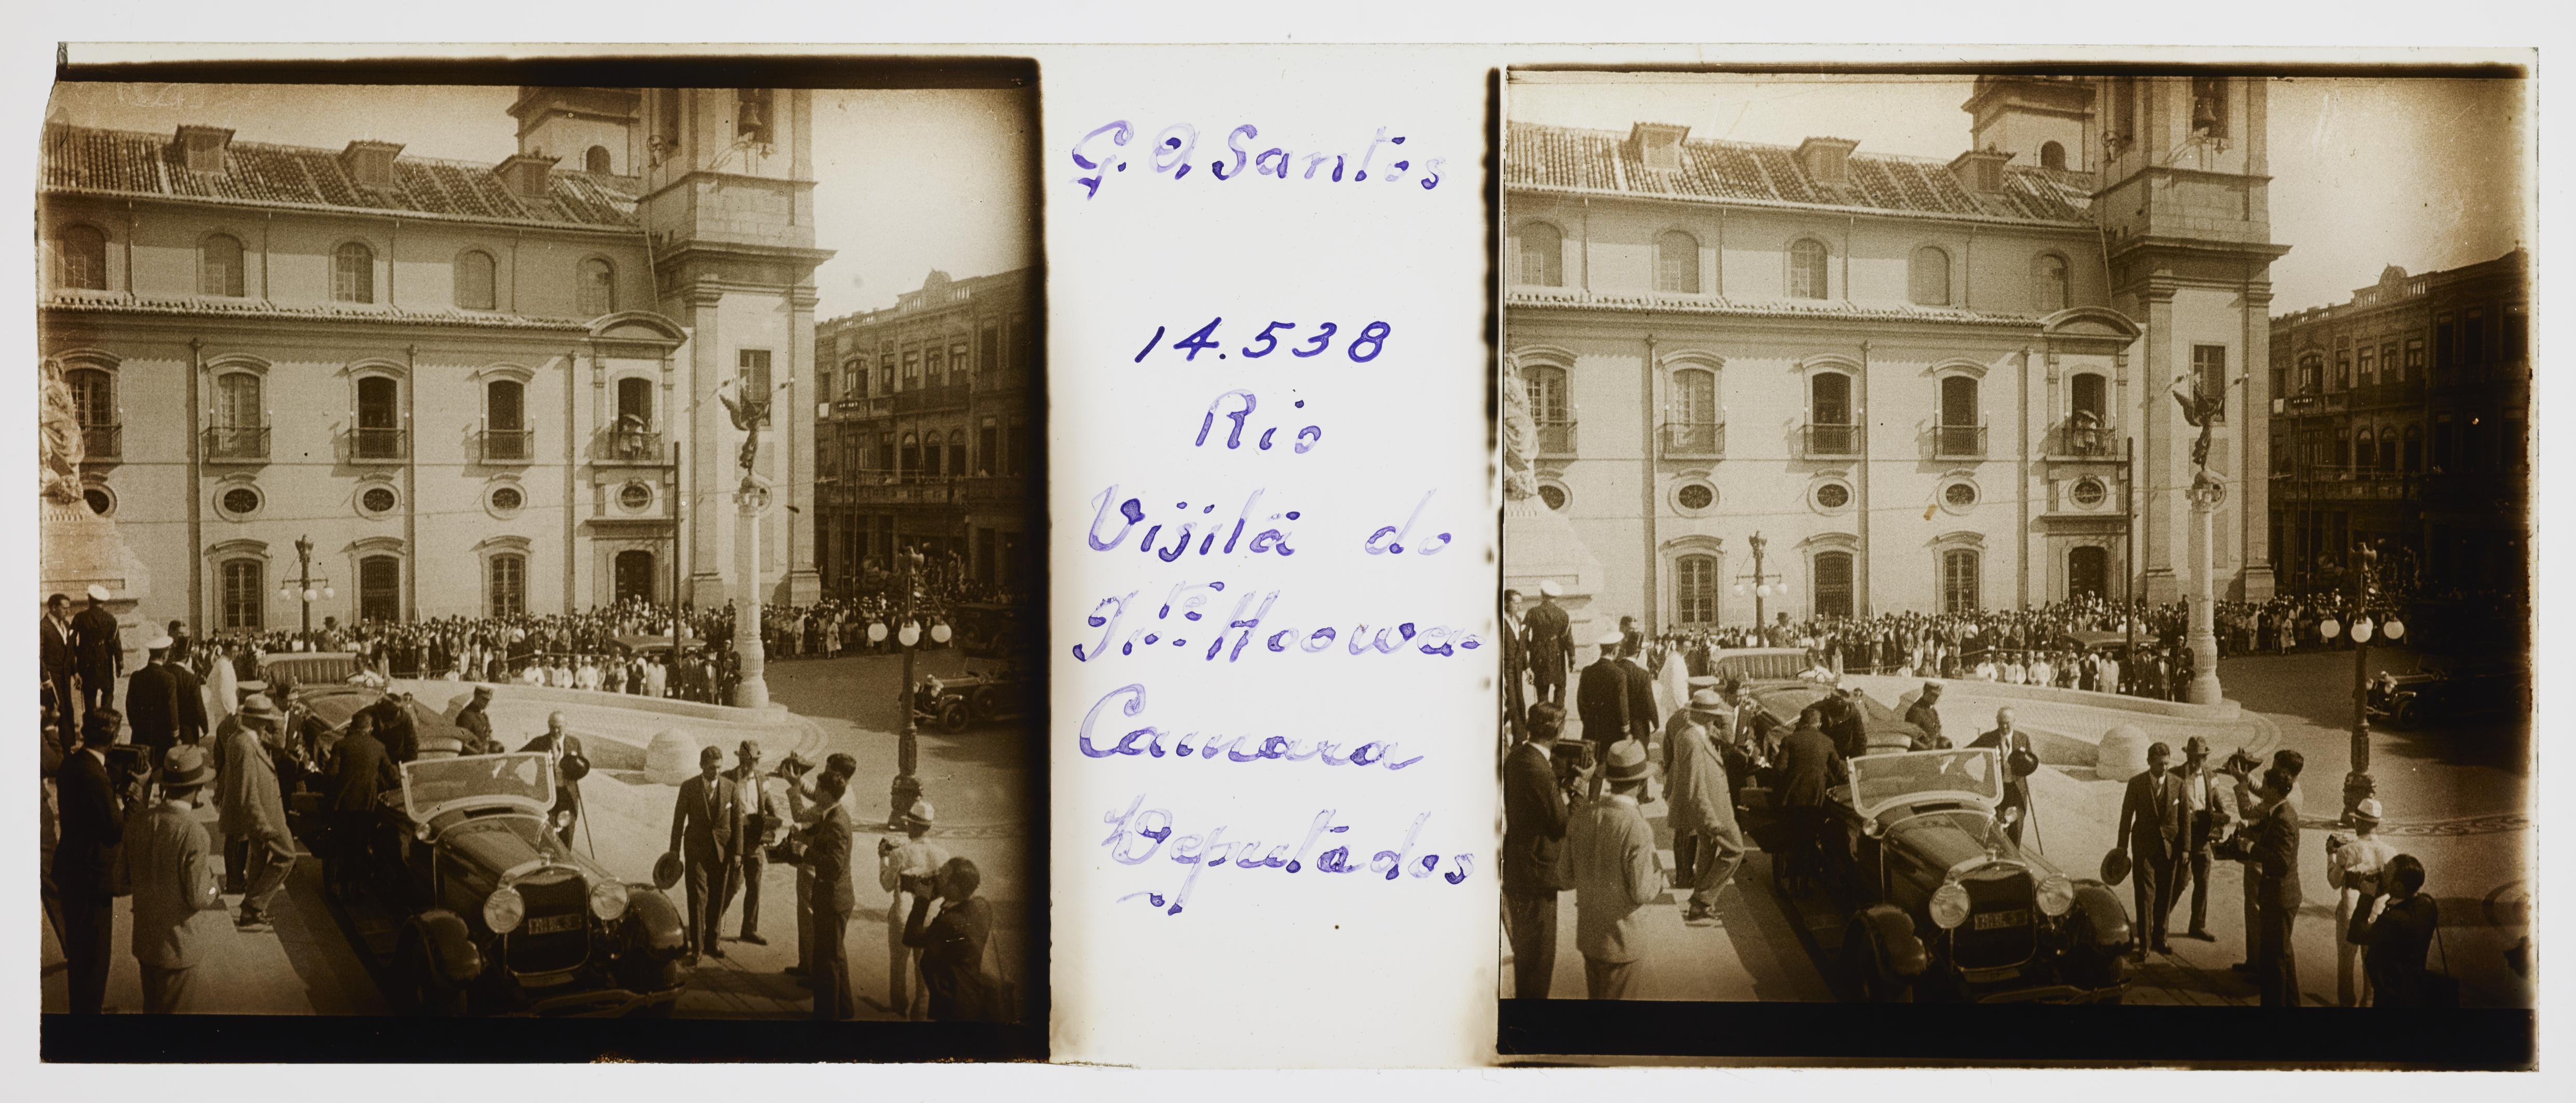 G. A. Santos
14.538
Rio
Visita do
Prte Hoower
Camara
Deputados